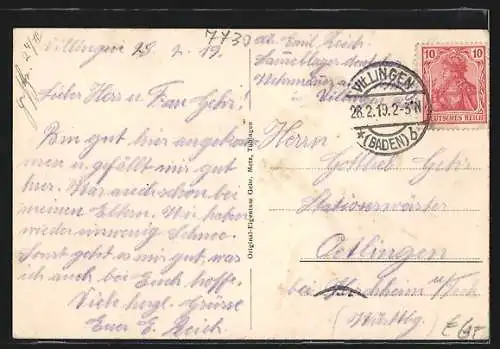 7730
Villingen 28. 2. 19.
Lieber Herr u Frau Gehr!
Bin gut hier angekom
men u gefällt mir gut
hier. War auch schon bei
meinen Eltern. Wir haben
wieder ein wenig Schnee.
Sonst geht es mir gut, was
ich auch bei Euch hoffe.
Viele herzl. Grüsse
Euer E. Reich.
Original-Eigentum Gebr. Metz, Tübingen
Abs. Emil Reich
Sammellager
Villingen
VILLINGEN
28.2.19.2-3N
*(BADEN)b
10 10
DEUTSCHES REICH
Herrn
Gottlieb Gehr
Stationswärter
Oetlingen
bei Kirchheim u/Teck
(Württbg.)